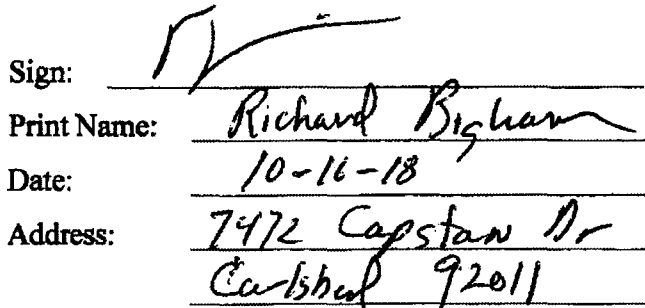 Sign:
Print Name: Richard Bigham
Date: 10-16-18
Address: 7472 Capstan Dr
Carlsbad 92011